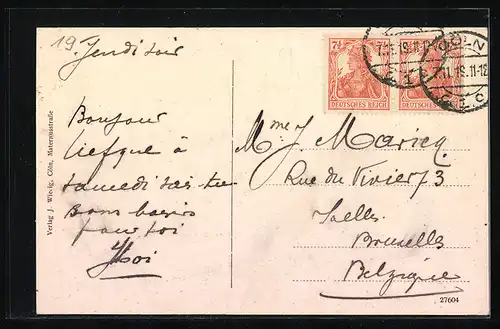 19
Jeudi soir
Bonjour
liefque à
samedi soir tu
Bons baisers
pour toi
Moi
Verlag J. Wiedig, Cöln, Maternusstraße
7½ 7½
DEUTSCHES REICH
DEUTSCHES REICH
CÖLN
7.11.19.11-12
Mme J Maricq
Rue du Vivier 73
Ixelles
Bruxelles
Belgique
27604